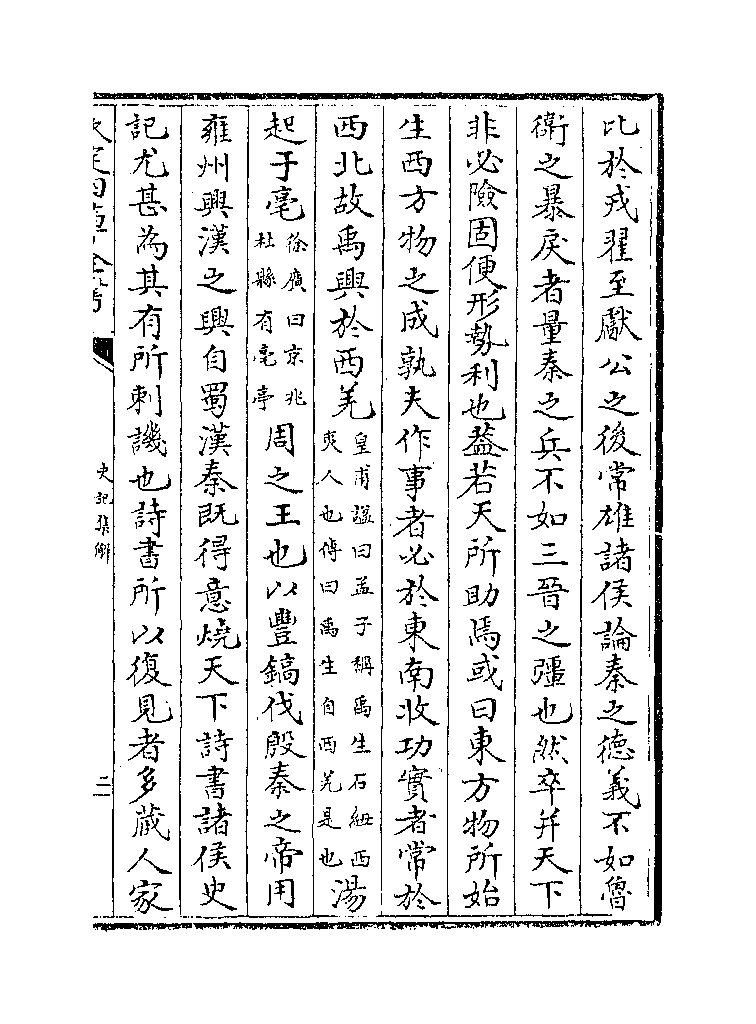 比於戎翟至獻公之後常雄諸侯論秦之德義不如魯
衛之暴戾者量秦之兵不如三晉之彊也然卒并天下
非必險固便形勢利也蓋若天所助焉或曰東方物所始
生西方物之成孰夫作事者必於東南收功實者常於
西北故禹興於西羌皇甫謐曰孟子稱禹生石紐西夷人也傳曰禹生自西羌是也湯
起于亳徐廣曰京兆杜縣有亳亭周之王也以豐鎬伐殷秦之帝用
雍州興漢之興自蜀漢秦既得意燒天下詩書諸侯史
記尤甚為其有所刺譏也詩書所以復見者多藏人家
史記集解
二